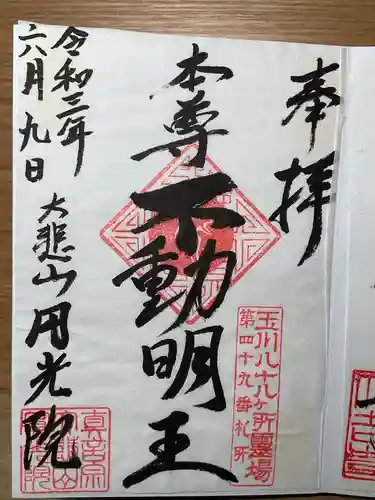 奉拝
玉川八十八ヶ所霊場
第四十九番札所
本尊不動明王
令和三年
六月九日
大悲山円光院